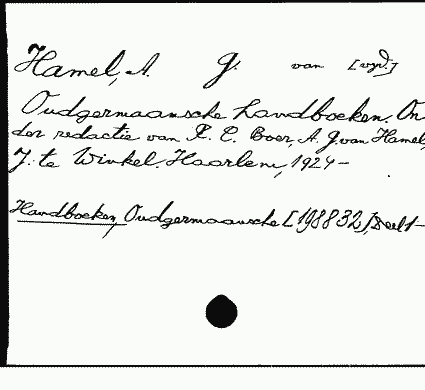 Hamel, A. G. van [wyd.]
Oudgermaansche handboeken. On
der redactie van R. C. Boer, A. G. van Hamel,
J. te Winkel. Haarlem, 1924-
Handboeken, Oudgermaansche [198832], Deel 1-